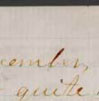 cember,
quite